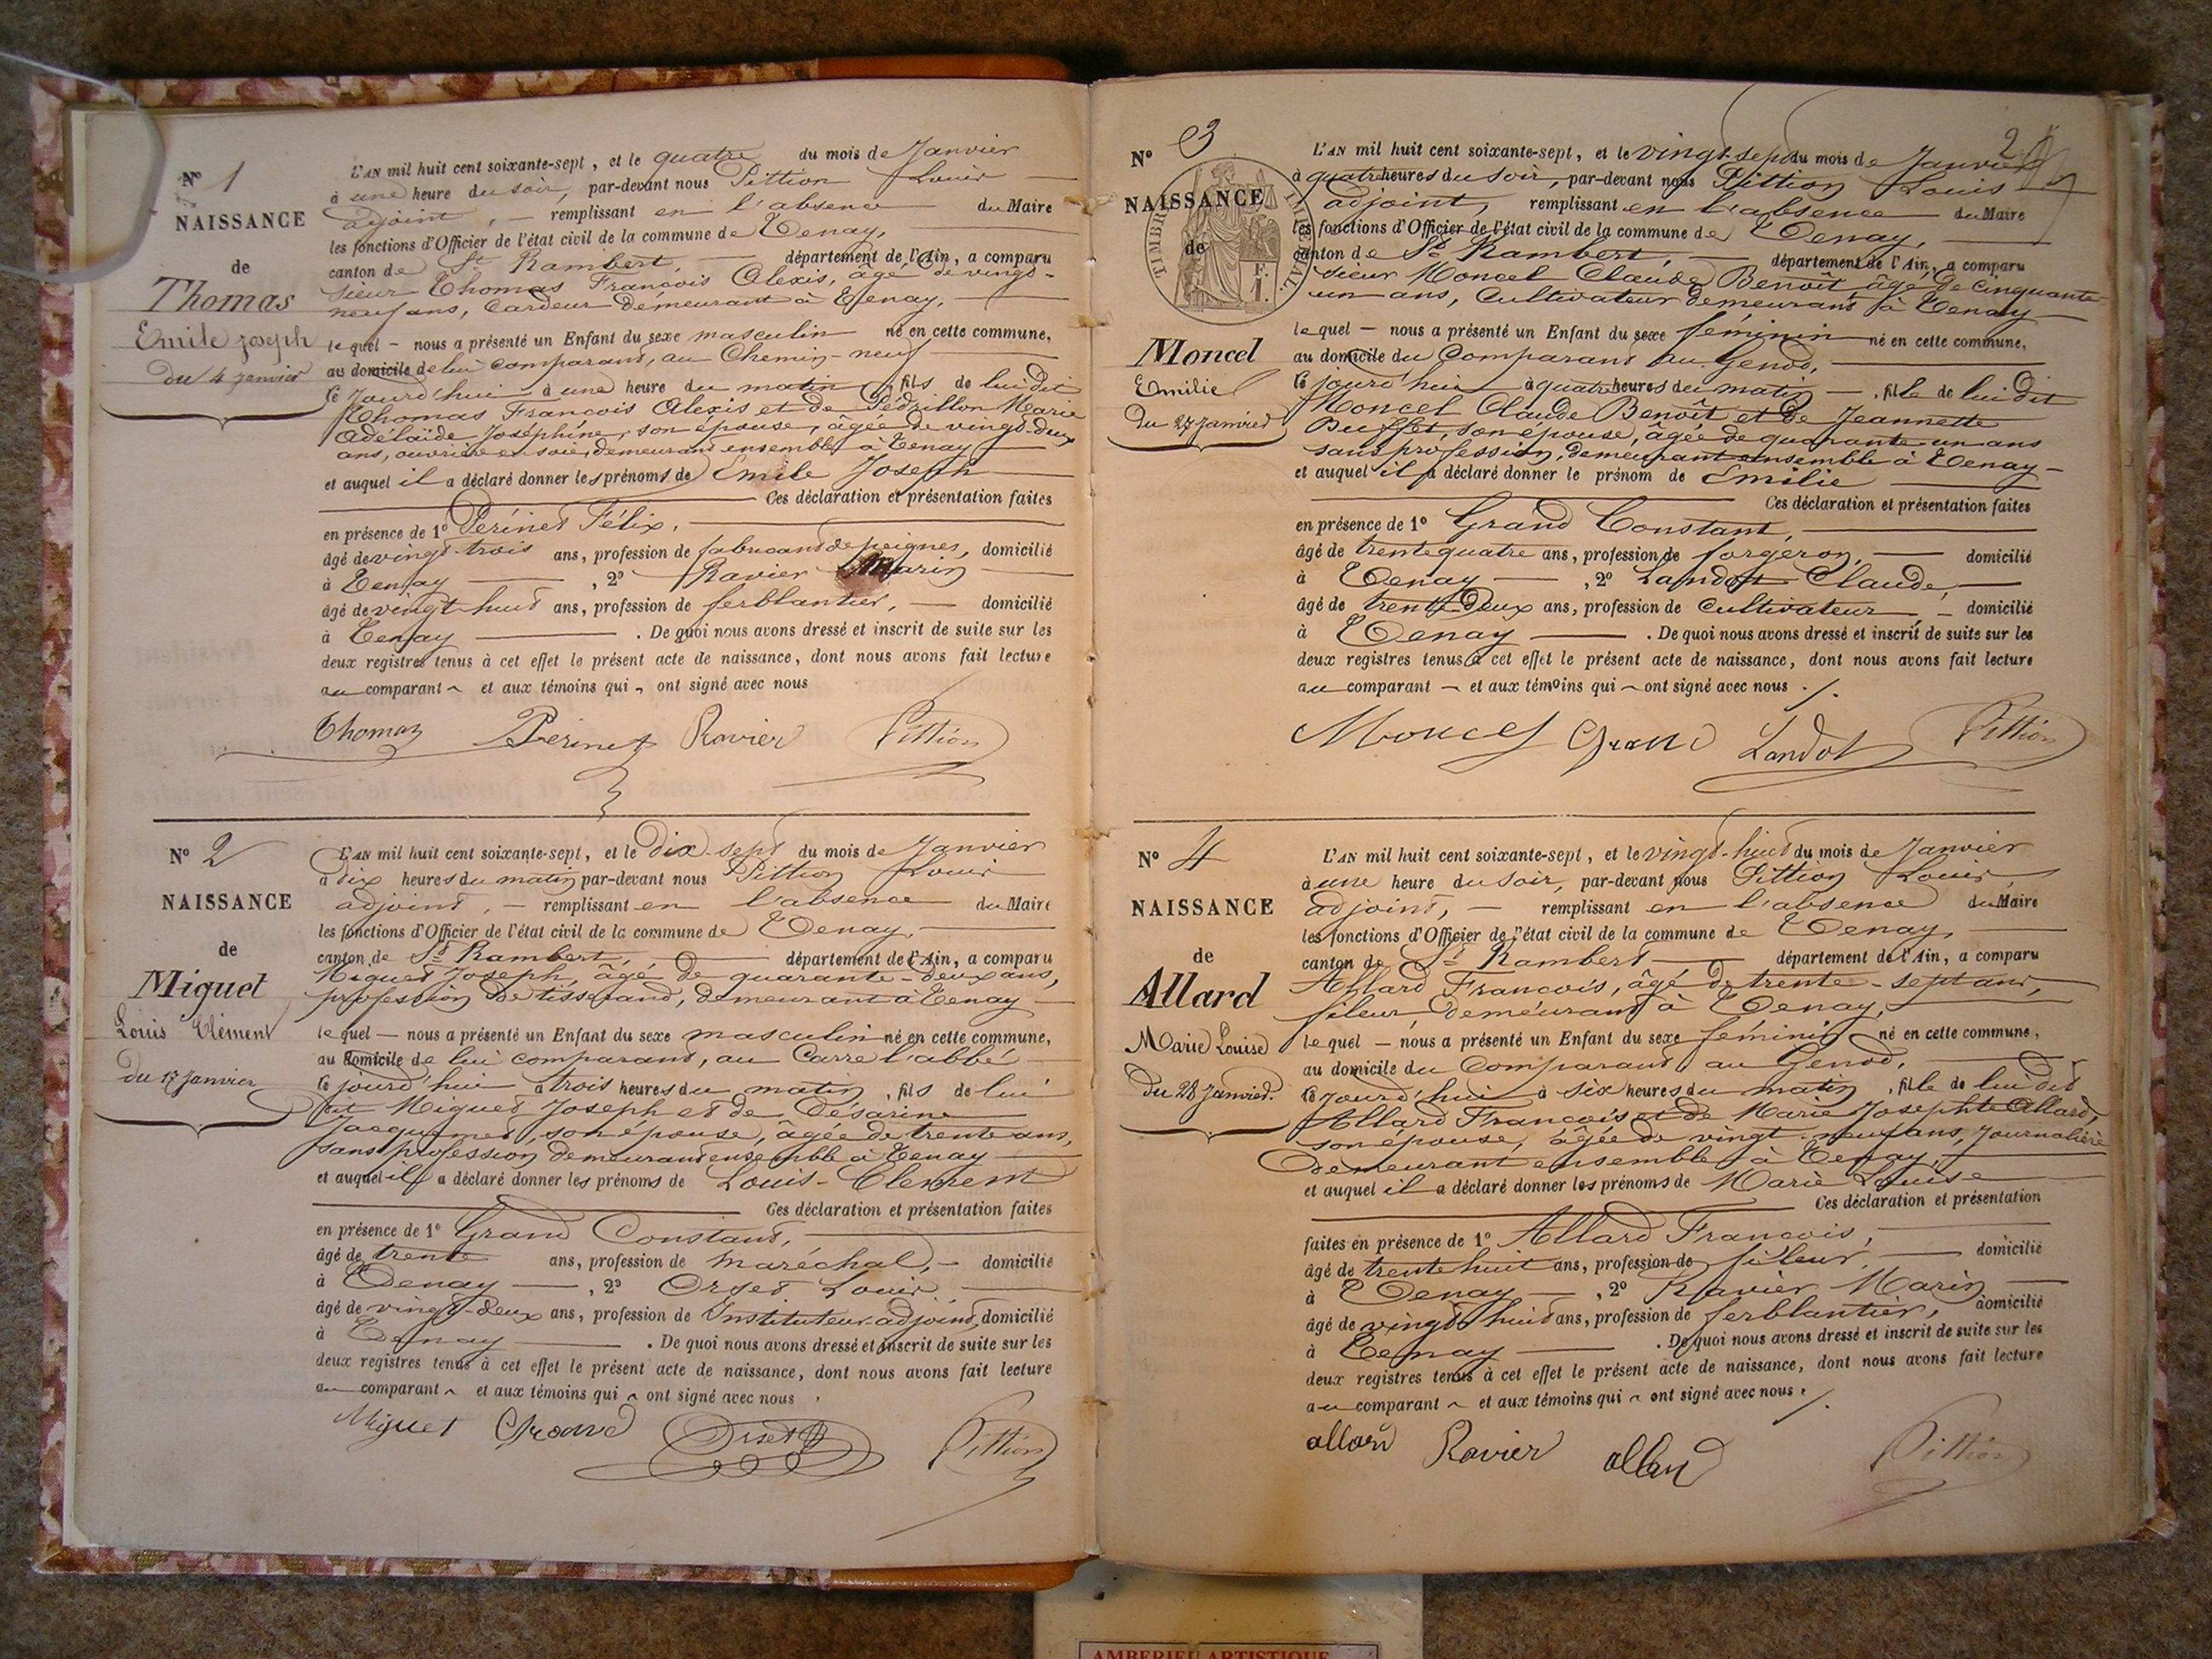 N° 1
NAISSANCE
de
Thomas
Emile Joseph
du 4 janvier
L'AN mil huit cent soixante-sept, et le quatre du mois de Janvier
à une heure du soir, par-devant nous Pittion Louis
adjoint, remplissant en l'absence du Maire
les fonctions d'Officier de l'état civil de la commune de Tenay,
canton de St Rambert, département de l'Ain, a comparu
sieur Thomas François Alexis, âgé de vingt-
neuf ans, Cardeur demeurant à Tenay,
lequel nous a présenté un Enfant du sexe masculin né en cette commune,
au domicile de lui comparant, au Chemin-neuf
ce jourd'hui à une heure du matin, fils de lui dit
Thomas François Alexis et de Pédrillon Marie
Adélaïde Joséphine, son épouse, âgée de vingt-deux
ans, ouvrière en soie, demeurant ensemble à Tenay
et auquel il a déclaré donner les prénoms de Emile Joseph
Ces déclaration et présentation faites
en présence de 1° Périnet Félix,
âgé de vingt trois ans, profession de fabricant de peignes, domicilié
à Tenay, 2° Ravier Marin
âgé de vingt huit ans, profession de ferblantier, domicilié
à Tenay. De quoi nous avons dressé et inscrit de suite sur les
deux registres tenus à cet effet le présent acte de naissance, dont nous avons fait lecture
au comparant et aux témoins qui ont signé avec nous
Thomas Périnet Ravier Pittion
N° 2
NAISSANCE
de
Miguet
Louis Clément
du 17 janvier
L'AN mil huit cent soixante-sept, et le dix-sept du mois de Janvier
à dix heures du matin par-devant nous Pittion Louis
adjoint, remplissant en l'absence du Maire
les fonctions d'Officier de l'état civil de la commune de Tenay,
canton de St Rambert, département de l'Ain, a comparu
Miguet Joseph, âgé de quarante-deux ans,
profession de tisserand, demeurant à Tenay
lequel nous a présenté un Enfant du sexe masculin né en cette commune,
au domicile de lui comparant, au Carre l'abbé
ce jourd'hui à trois heures du matin, fils de lui
dit Miguet Joseph et de Désarine
Jacquemet, son épouse, âgée de trente ans,
sans profession demeurant ensemble à Tenay
et auquel il a déclaré donner les prénoms de Louis-Clément
Ces déclaration et présentation faites
en présence de 1° Grand Constant,
âgé de trente ans, profession de maréchal, domicilié
à Tenay, 2° Orset Louis
âgé de vingt-deux ans, profession de Instituteur adjoint, domicilié
à Tenay. De quoi nous avons dressé et inscrit de suite sur les
deux registres tenus à cet effet le présent acte de naissance, dont nous avons fait lecture
au comparant et aux témoins qui ont signé avec nous
Miguet Grand Orset Pittion
2
N° 3
NAISSANCE
de
TIMBRE IMPÉRIAL
F.
1.
Moncel
Emilie
Du 27 janvier
L'AN mil huit cent soixante-sept, et le vingt-sept du mois de Janvier
à quatre heures du soir, par-devant nous Pittion Louis
adjoint, remplissant en l'absence du Maire
les fonctions d'Officier de l'état civil de la commune de Tenay,
canton de St Rambert, département de l'Ain, a comparu
sieur Moncel Claude Benoît âgé de cinquante
un ans, Cultivateur demeurant à Tenay
lequel nous a présenté un Enfant du sexe féminin né en cette commune,
au domicile du Comparant au Genod,
ce jourd'hui à quatre heures du matin, fille de lui dit
Moncel Claude Benoît et de Jeannette
Buffet, son épouse, âgée de quarante un ans
sans profession, demeurant ensemble à Tenay
et auquel il a déclaré donner le prénom de Emilie
Ces déclaration et présentation faites
en présence de 1° Grand Constant,
âgé de trente quatre ans, profession de forgeron, domicilié
à Tenay, 2° Landot Claude,
âgé de trente deux ans, profession de Cultivateur, domicilié
à Tenay. De quoi nous avons dressé et inscrit de suite sur les
deux registres tenus à cet effet le présent acte de naissance, dont nous avons fait lecture
au comparant et aux témoins qui ont signé avec nous ./.
Moncel Grand Landot Pittion
N° 4
NAISSANCE
de
Allard
Marie Louise
Du 28 janvier.
L'AN mil huit cent soixante-sept, et le vingt-huit du mois de Janvier
à une heure du soir, par-devant nous Pittion Louis
adjoint, remplissant en l'absence du Maire
les fonctions d'Officier de l'état civil de la commune de Tenay,
canton de St Rambert département de l'Ain, a comparu
Allard François, âgé de trente-sept ans,
fileur, demeurant à Tenay,
lequel nous a présenté un Enfant du sexe féminin né en cette commune,
au domicile du Comparant au Genod,
ce jourd'hui à six heures du matin, fille de lui dit
Allard François et de Marie Josephte Allard,
son épouse, âgée de vingt-neuf ans, Journalière
demeurant ensemble à Tenay,
et auquel il a déclaré donner les prénoms de Marie Louise
Ces déclaration et présentation
faites en présence de 1° Allard François,
âgé de trente huit ans, profession de fileur, domicilié
à Tenay, 2° Ravier Marin
âgé de vingt huit ans, profession de ferblantier, domicilié
à Tenay. De quoi nous avons dressé et inscrit de suite sur les
deux registres tenus à cet effet le présent acte de naissance, dont nous avons fait lecture
au comparant et aux témoins qui ont signé avec nous ./.
allard Ravier allard Pittion
AMBERIEU ARTISTIQUE